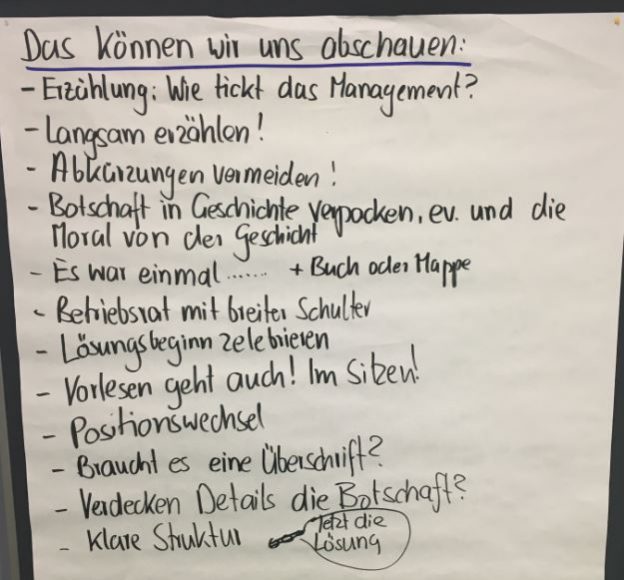 Das können wir uns abschauen:
- Erzählung: Wie tickt das Management?
- Langsam erzählen!
- Abkürzungen vermeiden!
- Botschaft in Geschichte verpacken, ev. und die
Moral von der Geschicht
- Es war einmal ....... + Buch oder Mappe
- Betriebsrat mit breiter Schulter
- Lösungsbeginn zelebrieren
- Vorlesen geht auch! Im Sitzen!
- Positionswechsel
- Braucht es eine Überschrift?
- Verdecken Details die Botschaft?
- Klare Struktur
Jetzt die
Lösung